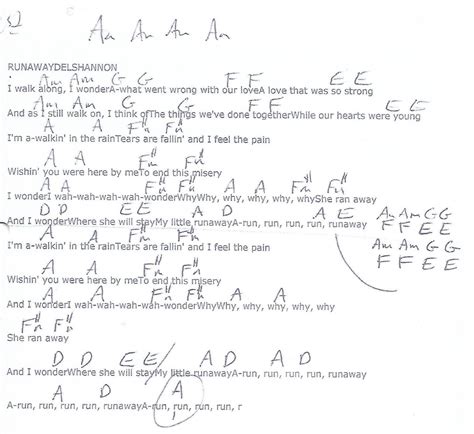 Am Am Am Am
RUNAWAYDELSHANNON
Am Am G G F F E E
I walk along, I wonderA-what went wrong with our loveA love that was so strong
Am Am G G F F E E
And as I still walk on, I think ofThe things we've done togetherWhile our hearts were young
A A F#m F#m
I'm a-walkin' in the rainTears are fallin' and I feel the pain
A A F#m F#m
Wishin' you were here by meTo end this misery
A A F#m F#m A A F#m F#m
I wonderI wah-wah-wah-wah-wonderWhyWhy, why, why, why, whyShe ran away
D D E E A D A E Am Am G G
And I wonderWhere she will stayMy little runawayA-run, run, run, run, runaway F F E E
A A F#m F#m Am Am G G
I'm a-walkin' in the rainTears are fallin' and I feel the pain F F E E
A A F#m F#m
Wishin' you were here by meTo end this misery
A A F#m F#m A A
And I wonderI wah-wah-wah-wah-wonderWhyWhy, why, why, why, why
F#m F#m
She ran away
D D E E A D A D
And I wonderWhere she will stayMy little runawayA-run, run, run, run, runaway
A D A
A-run, run, run, run, runawayA-run, run, run, run, r